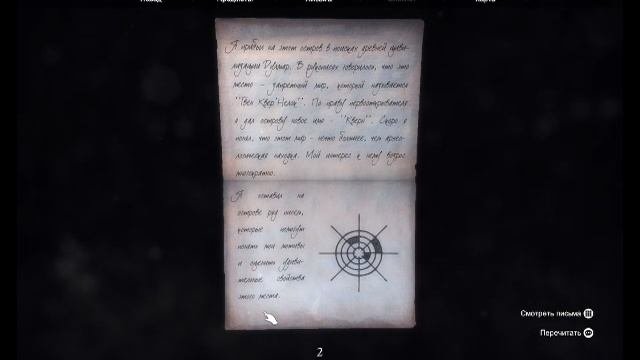 Я прибыл на этот остров в поисках древней циви-
лизации Дулмар. В рукописях говорилось, что это
место - запретный мир, который называется
По праву первооткрывателя
я дал острову новое имя - "Кверн". Скоро я
понял, что этот мир - нечто большее, чем архео-
логическая находка. Мой интерес к нему возрос
многократно.
Я оставил на
острове ряд писем,
которые помогут
понять мои мотивы
и оценить удиви-
тельные свойства
этого места.
Смотреть письма
Перечитать
2